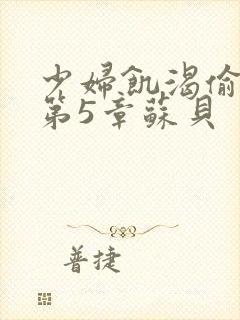 少婦飢渴偷
第5章蘇貝
普捷